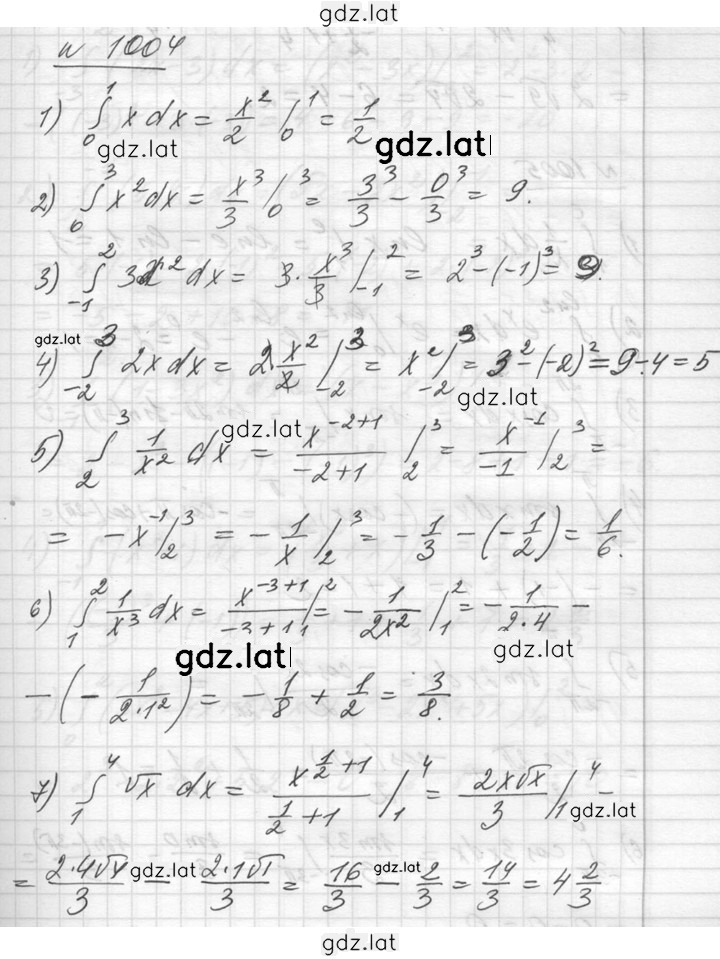 gdz.lat
№ 1004
1) ∫₀¹ x dx = x²/2 |₀¹ = 1/2
gdz.lat gdz.lat
2) ∫₀³ x² dx = x³/3 |₀³ = 3³/3 − 0³/3 = 9.
3) ∫₋₁² 3x² dx = 3·x³/3 |₋₁² = 2³ − (−1)³ = 9.
gdz.lat
4) ∫₋₂³ 2x dx = 2·x²/2 |₋₂³ = x² |₋₂³ = 3² − (−2)² = 9 − 4 = 5
gdz.lat
gdz.lat
5) ∫₂³ 1/x² dx = x⁻²⁺¹/(−2+1) |₂³ = x⁻¹/−1 |₂³ =
= −x⁻¹ |₂³ = −1/x |₂³ = −1/3 − (−1/2) = 1/6.
6) ∫₁² 1/x³ dx = x⁻³⁺¹/(−3+1) |₁² = −1/(2x²) |₁² = −1/(2·4) −
gdz.lat gdz.lat
− (−1/(2·1²)) = −1/8 + 1/2 = 3/8.
7) ∫₁⁴ √x dx = x^(1/2+1)/(1/2+1) |₁⁴ = 2x√x/3 |₁⁴ =
gdz.lat
= 2·4√4/3 − 2·1√1/3 = 16/3 − 2/3 = 14/3 = 4 2/3
gdz.lat gdz.lat
gdz.lat